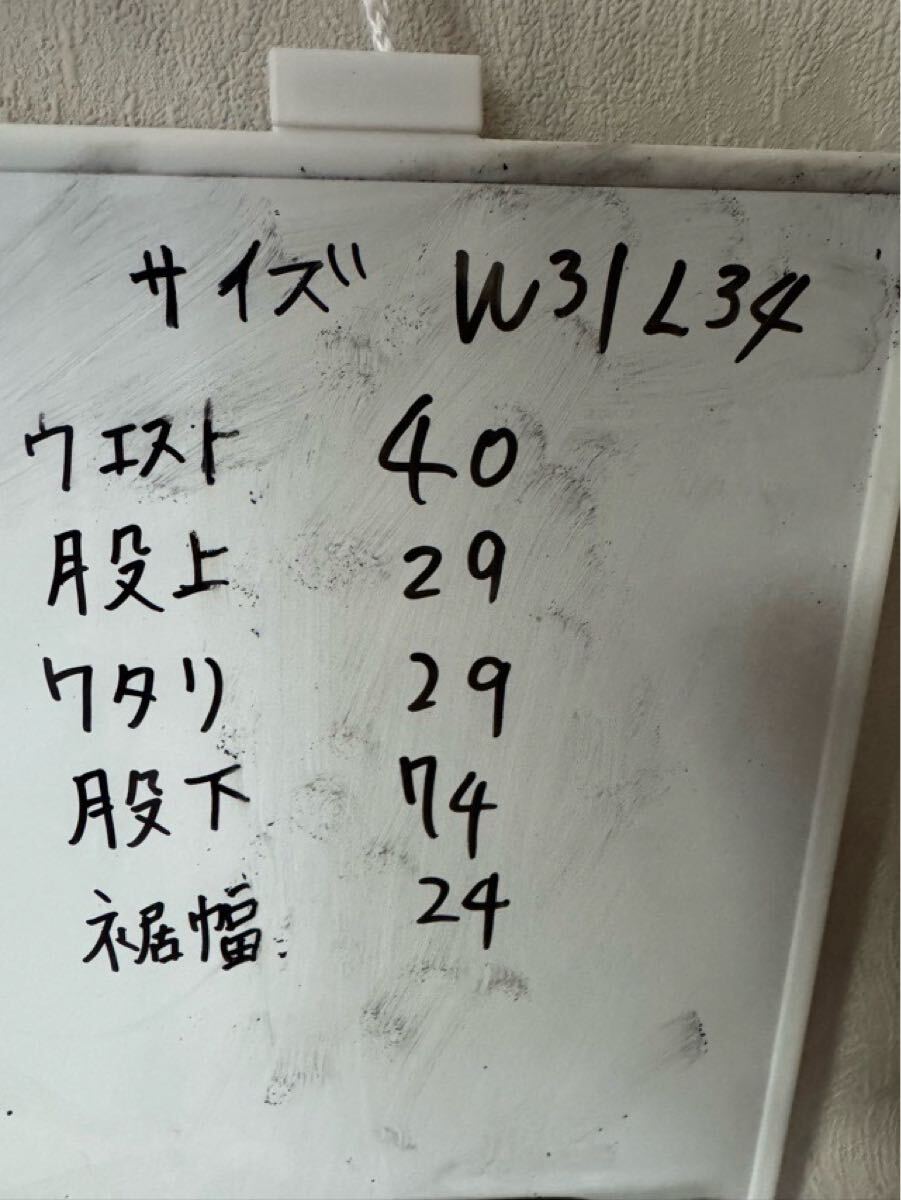 サイズ W31 L34
ウエスト 40
股上 29
ワタリ 29
股下 74
裾幅 24